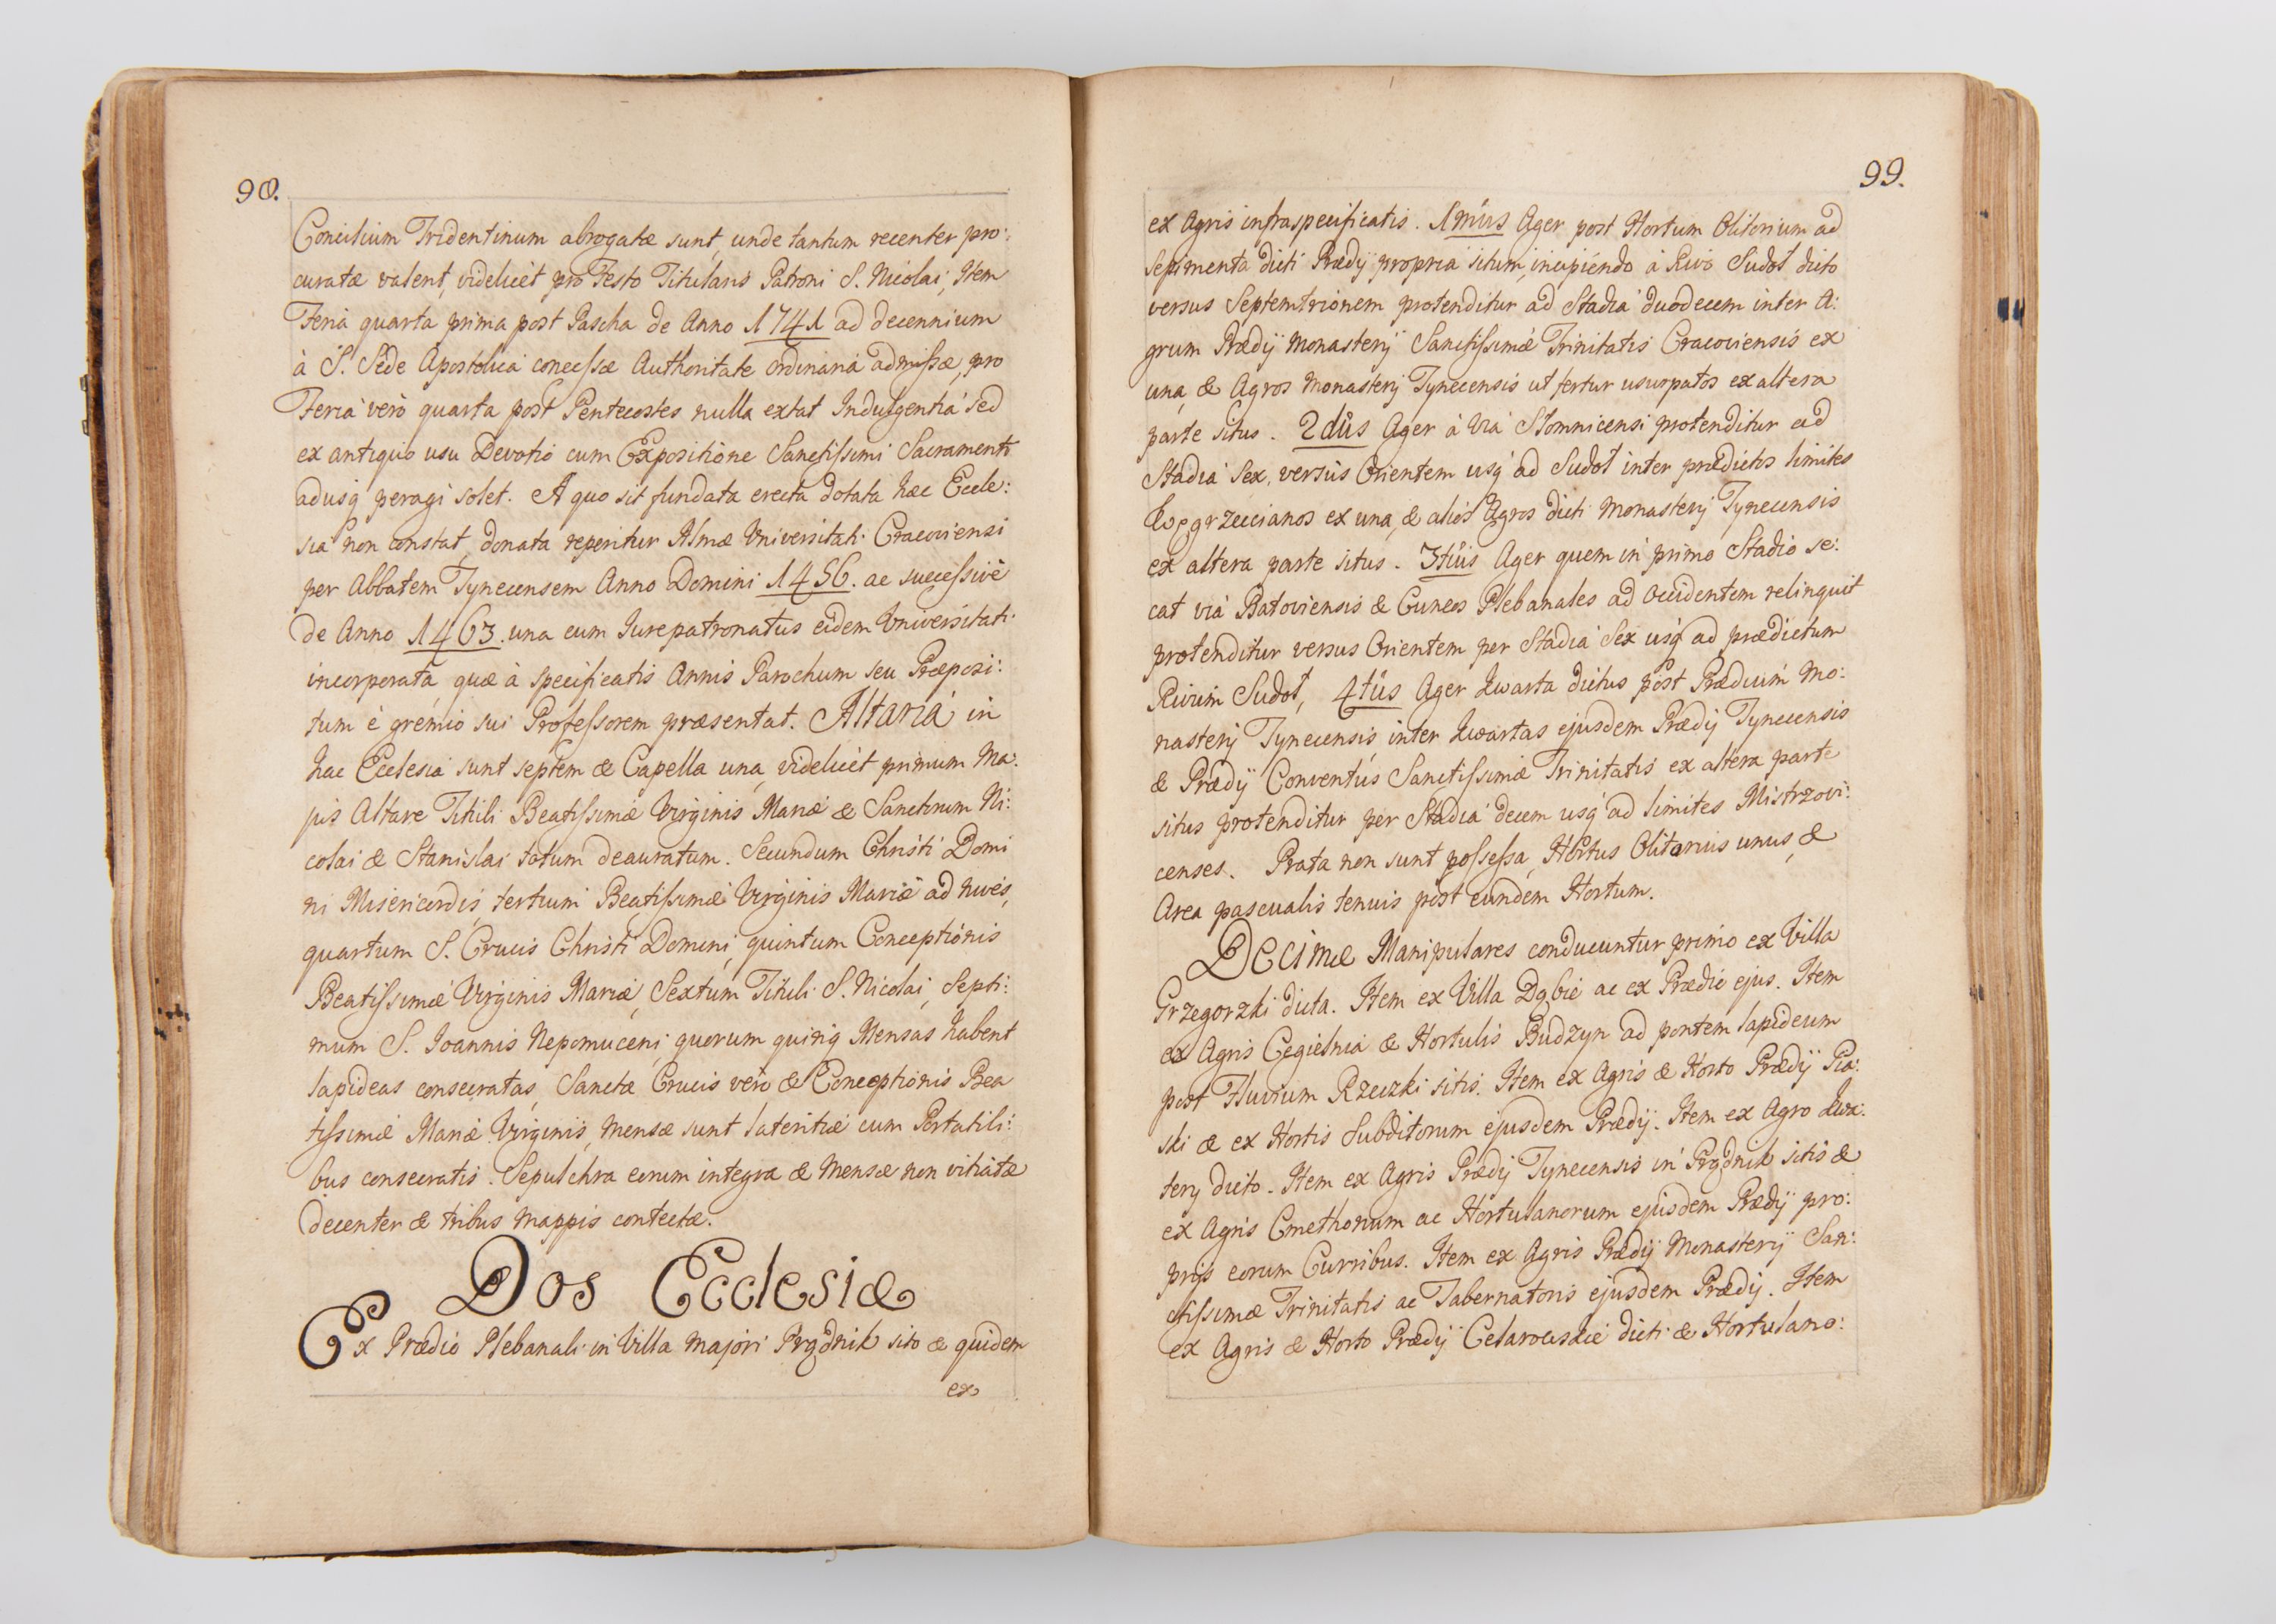 98.
Concilium Tridentinum abrogatæ sunt, unde tantum recenter pro:
curatæ valent, videlicèt pro Festo Titularis Patroni S. Nicolai, Item
Feria quarta prima post Pascha de Anno 1741 ad decennium
à S. Sede Apostolica concessæ Authoritate ordinaria admissæ, pro
Feria verò quarta post Pentecostes nulla extat Indulgentia sed
ex antiquo usu Devotio cum Expositione Sanctissimi Sacramenti
adusq peragi solet. A quo sit fundata erecta dotata hæc Eccle:
sia non constat, donata reperitur Almæ Universitati Cracoviensi
per Abbatem Tynecensem Anno Domini 1456. ac successivè
de Anno 1463. una cum Jurepatronatus eidem Universitati
incorporata, quæ à specificatis Annis Parochum seu Præposi:
tum è gremio sui Professorem præsentat. Altaria in
hac Ecclesia sunt septem & Capella una, videlicèt primum Ma:
jus Altare Tituli Beatissimæ Virginis Mariæ & Sanctorum Ni:
colai & Stanislai totum deauratum. Secundum Christi Domi
ni Misericordis, tertium Beatissimæ Virginis Mariæ ad nives,
quartum S. Crucis Christi Domini, quintum Conceptionis
Beatissimæ Virginis Mariæ, Sextum Tituli S. Nicolai, Septi:
mum S. Joannis Nepomuceni, quorum quinq Mensas habent
lapideas consecratas, Sanctæ Crucis verò & Conceptionis Bea
tissimæ Mariæ Virginis, mensæ sunt lateritiæ cum Portatili:
bus consecratis. Sepulchra eorum integra & mensæ non vitiatæ
decenter & tribus mappis contectæ.
Dos Ecclesiæ
Ex Prædio Plebanali in Villa majori Prądnik sito & quidem
ex
99.
ex Agris infraspecificatis. 1mus Ager post Hortum Olitorium ad
sepimenta dicti Prædij propria situm, incipiendo à Rivo Sudoł dicto
versus Septemtrionem protenditur ad Stadia duodecem inter A:
grum Prædij Monasterij Sanctissimæ Trinitatis Cracoviensis ex
una, & Agros Monasterij Tynecensis ut fertur usurpatos ex altera
parte situs. 2dus Ager à Via Słomnicensi protenditur ad
Stadia Sex, versus Orientem usq ad Sudoł inter prædictos limites
ex una, & alios Agros dicti Monasterij Tynecensis
ex altera parte situs. 3tius Ager quem in primo Stadio se:
cat via Batoviensis & Cuneos Plebanales ad Occidentem relinquit
protenditur versus Orientem per Stadia Sex usq ad prædictum
Rivum Sudoł, 4tus Ager Kwarta dictus post Prædium Mo:
nasterij Tynecensis, inter Kwartas ejusdem Prædij Tynecensis
& Prædij Conventus Sanctissimæ Trinitatis ex altera parte
situs protenditur per Stadia decem usq ad limites Mistrzovi:
censes. Prata non sunt possessa, Hortus Olitorius unus, &
Area pascualis tenuis post eundem Hortum.
Decimæ Manipulares conducuntur primo ex Villa
Grzegorzki dicta. Item ex Villa Dąbie ac ex Prædio ejus. Item
ex Agris Cegielnia & Hortulis Budzyn ad pontem lapideum
post Fluvium Rzeczki sitis. Item ex Agris & Horto Prædij Pia:
ski & ex Hortis Subditorum ejusdem Prædij. Item ex Agro Kwa:
tery dicto. Item ex Agris Prædij Tynecensis in Prądnik sitis &
ex Agris Cmethonum ac Hortulanorum ejusdem Prædij pro:
prijs eorum Curribus. Item ex Agris Prædij Monasterij San:
ctissimæ Trinitatis ac Tabernatoris ejusdem Prædij. Item
ex Agris & Horto Prædij Celarowskie dicti & Hortulano: